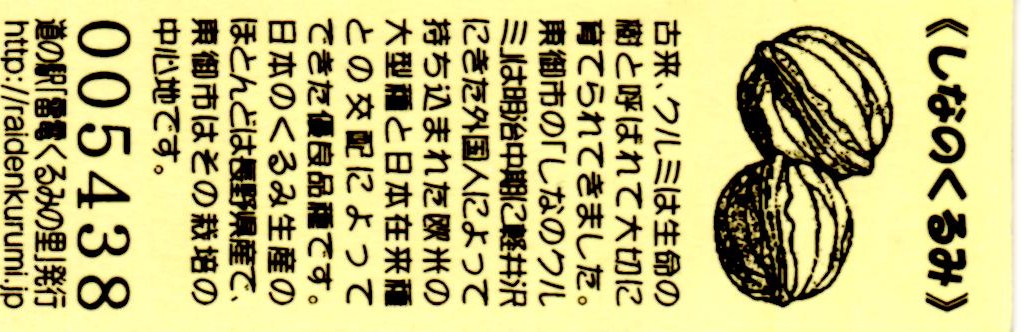 《しなのくるみ》
古来、クルミは生命の
樹と呼ばれて大切に
育てられてきました。
東御市の「しなのクル
ミ」は明治中期に軽井沢
にきた外国人によって
持ち込まれた欧米の
大型種と日本在来種
との交配によって
できた優良品種です。
日本のくるみ生産の
ほとんどは長野県産で、
東御市はその栽培の
中心地です。
005438
道の駅「雷電くるみの里」発行
http://raidenkurumi.jp